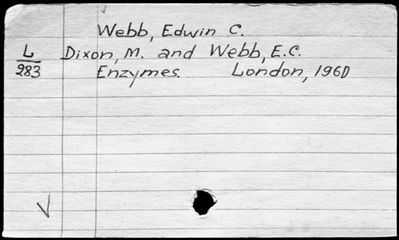 Webb, Edwin C.
L Dixon, M. and Webb, E.C.
283 Enzymes. London, 1960